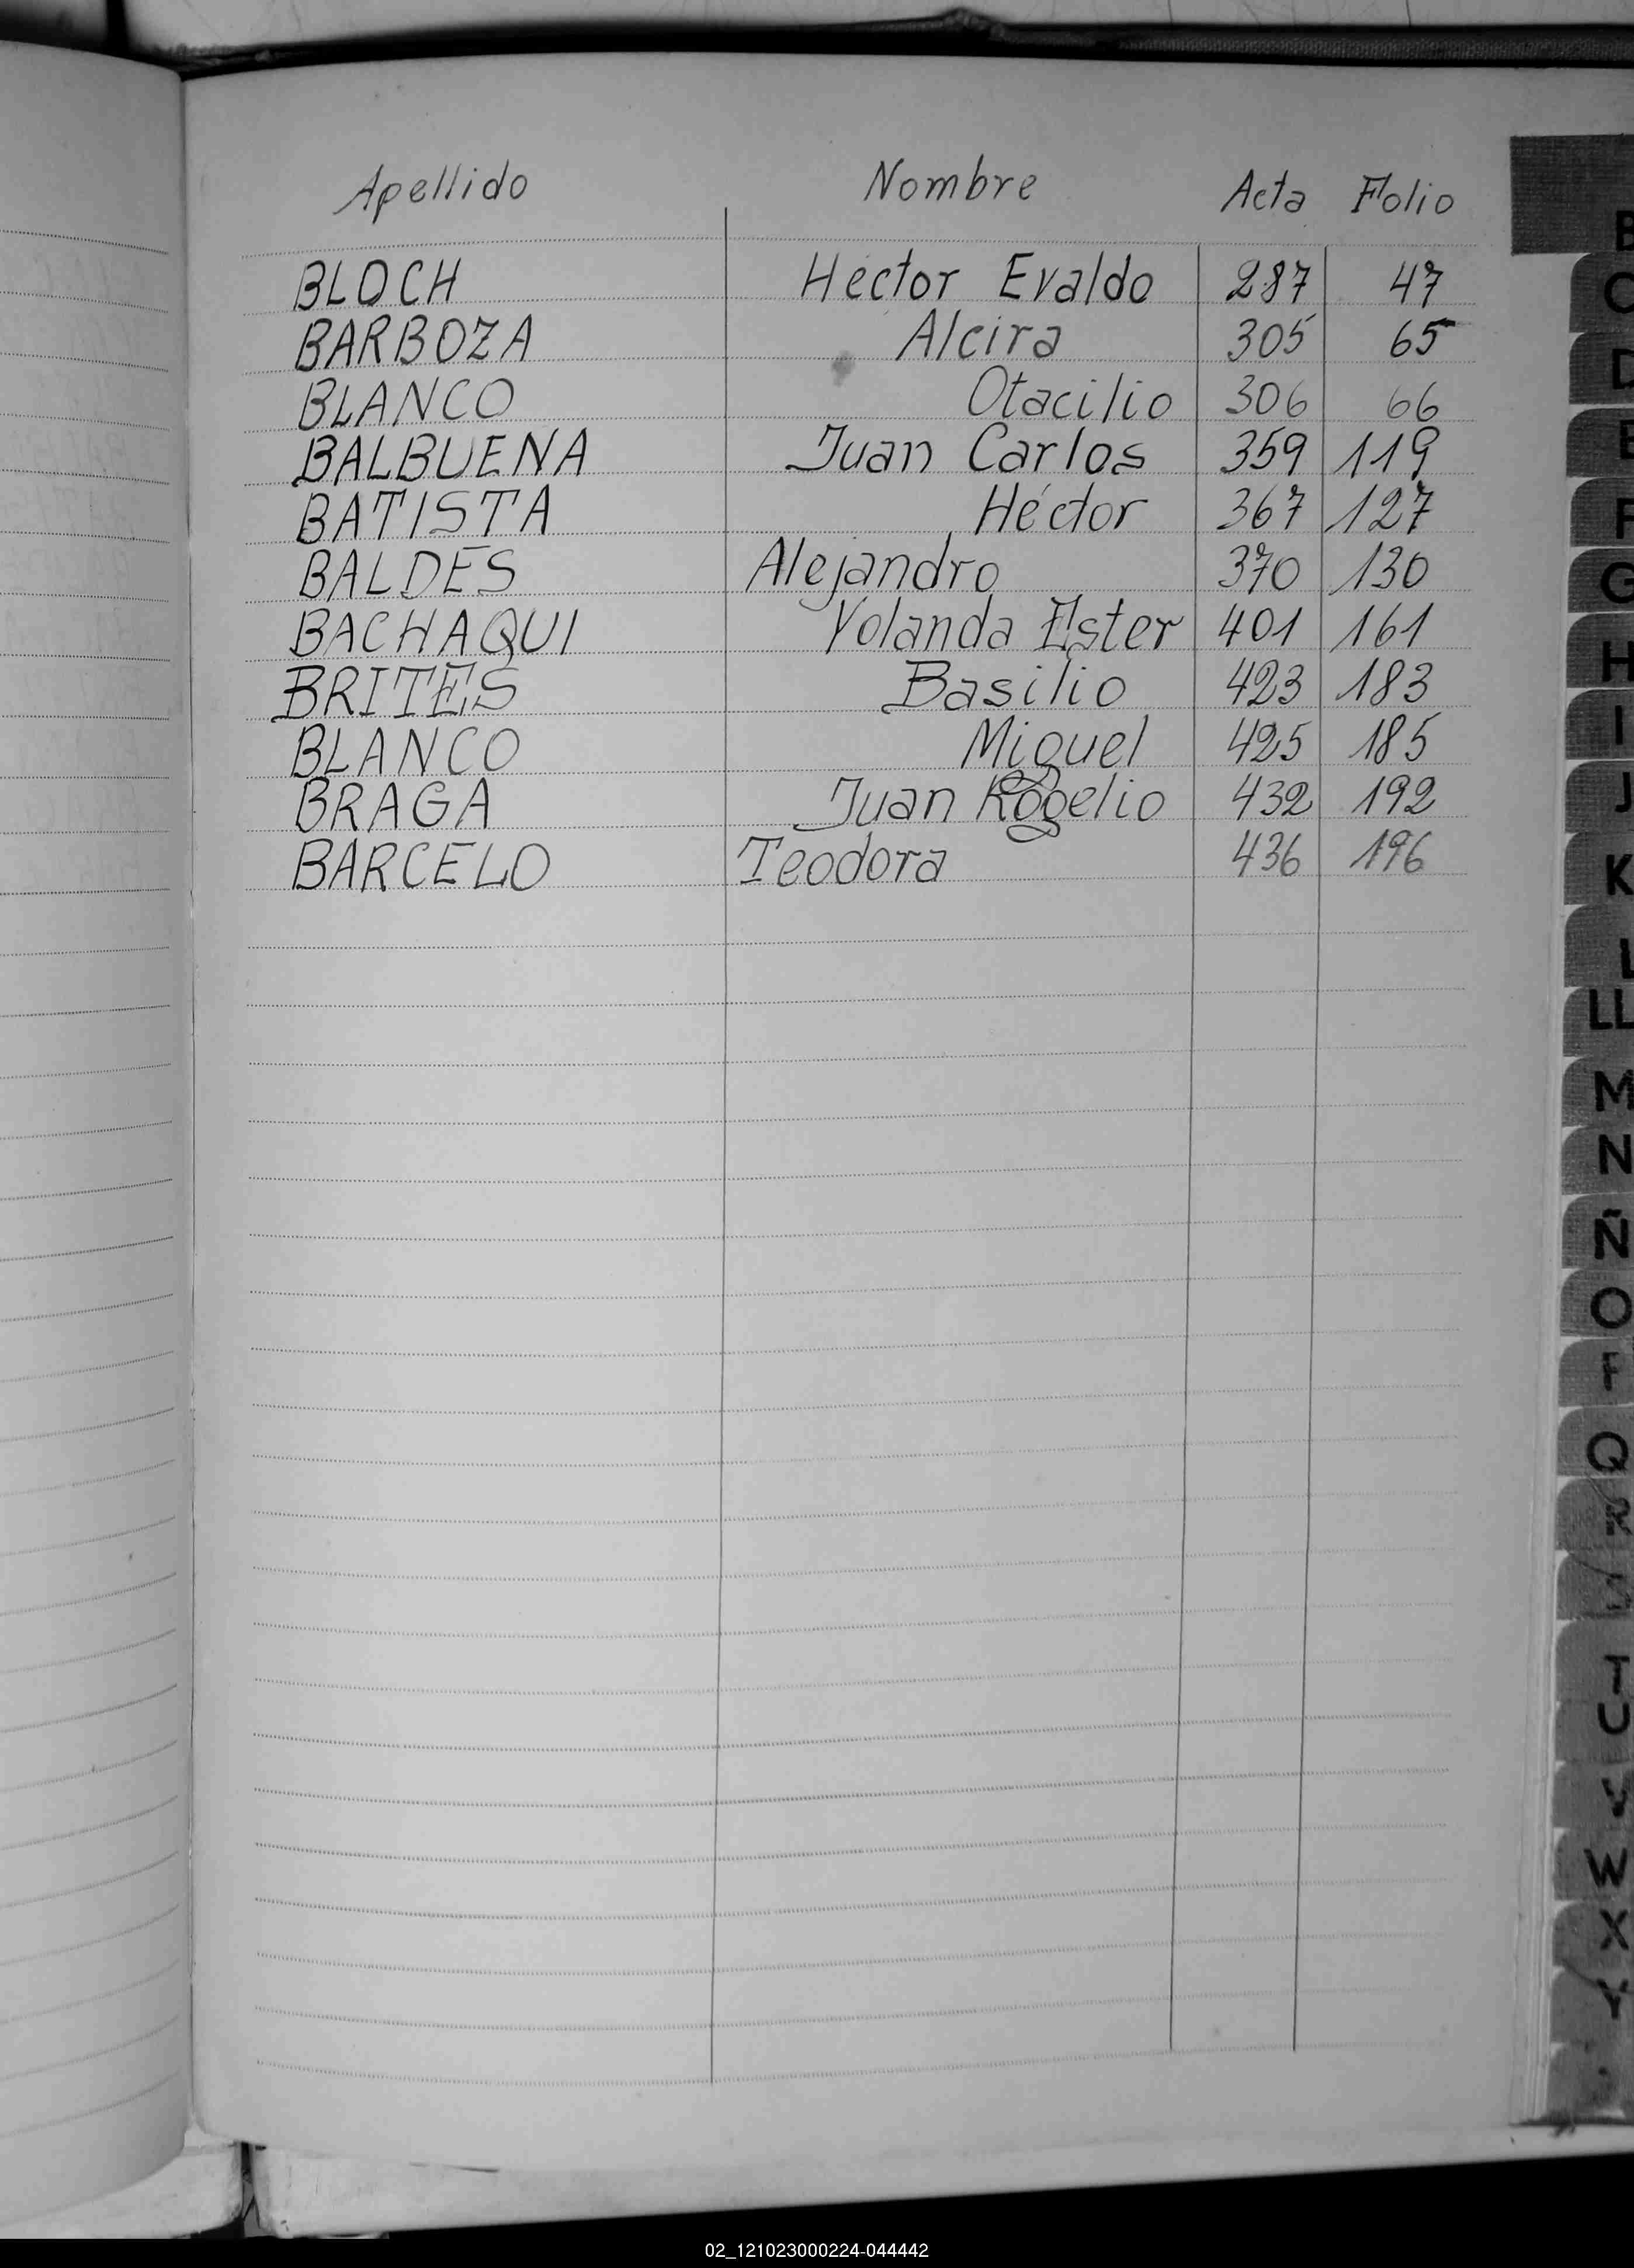 Apellido Nombre Acta Folio
BLOCH Hector Evaldo 287 47
BARBOZA Alcira 305 65
BLANCO Otacilio 306 66
BALBUENA Juan Carlos 359 119
BATISTA Héctor 367 127
BALDES Alejandro 370 130
BACHAQUI Yolanda Ester 401 161
BRITES Basilio 423 183
BLANCO Miguel 425 185
BRAGA Juan Rogelio 432 192
BARCELO Teodora 436 196
B
C
D
E
F
G
H
I
J
K
L
LL
M
N
Ñ
O
P
Q
R
T
U
V
W
X
Y
02_121023000224-044442